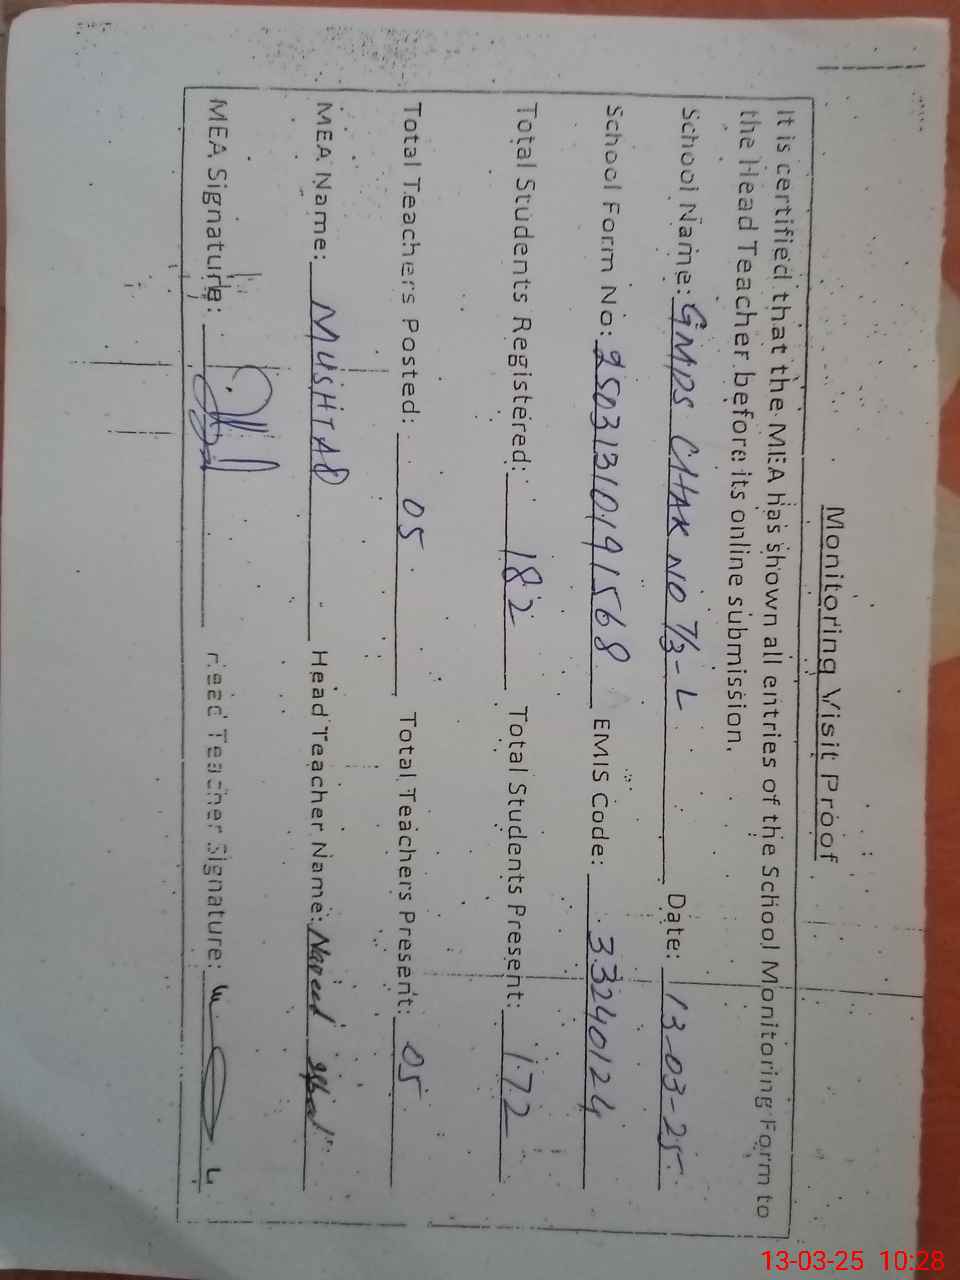 Monitoring Visit Proof
It is certified that the MEA has shown all entries of the School Monitoring Form to
the Head Teacher before its online submission.
School Name: GMPS CHAK NO 7/3-L Date: 13-03-25
School Form No: 25031310191568 EMIS Code: 33240124
Total Students Registered: 182 Total Students Present: 172
Total Teachers Posted: 05 Total Teachers Present: 05
MEA Name: MUSHTAQ Head Teacher Name: Naveed
MEA Signature: Head Teacher Signature:
13-03-25 10:28